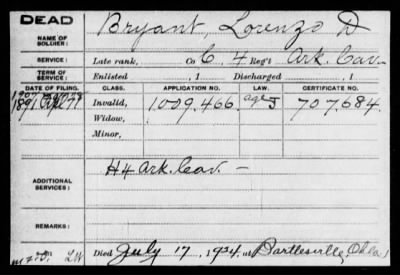 DEAD
Bryant, Lorenzo D
NAME OF SOLDIER:
SERVICE: Late rank, Co C, 4 Reg't Ark. Cav.
TERM OF SERVICE: Enlisted , 1 Discharged , 1
DATE OF FILING. CLASS. APPLICATION NO. LAW. CERTIFICATE NO.
1891 Invalid, 1009.466 age J 707.684
Widow,
Minor,
ADDITIONAL SERVICES: H 4 Ark. Cav. -
REMARKS:
Died July 17, 1924, at Bartlesville, Okla